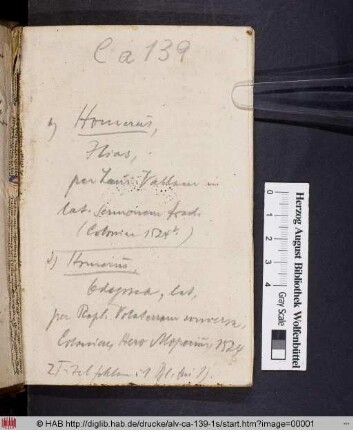 Ca 139
a) Homerus,
Ilias,
per Laur. Vallam in
lat. sermonem trad.
(Coloniae 1524.)
2) Homerus,
Odyssea, lat,
per Raph. Volaterranum conversa,
Coloniae, Hero Alopecius, 1524
2 T.
Herzog August Bibliothek Wolfenbüttel
Gray Scale
0 1 2 3 4 5 6 7 8
© HAB http://diglib.hab.de/drucke/alv-ca-139-1s/start.htm?image=00001